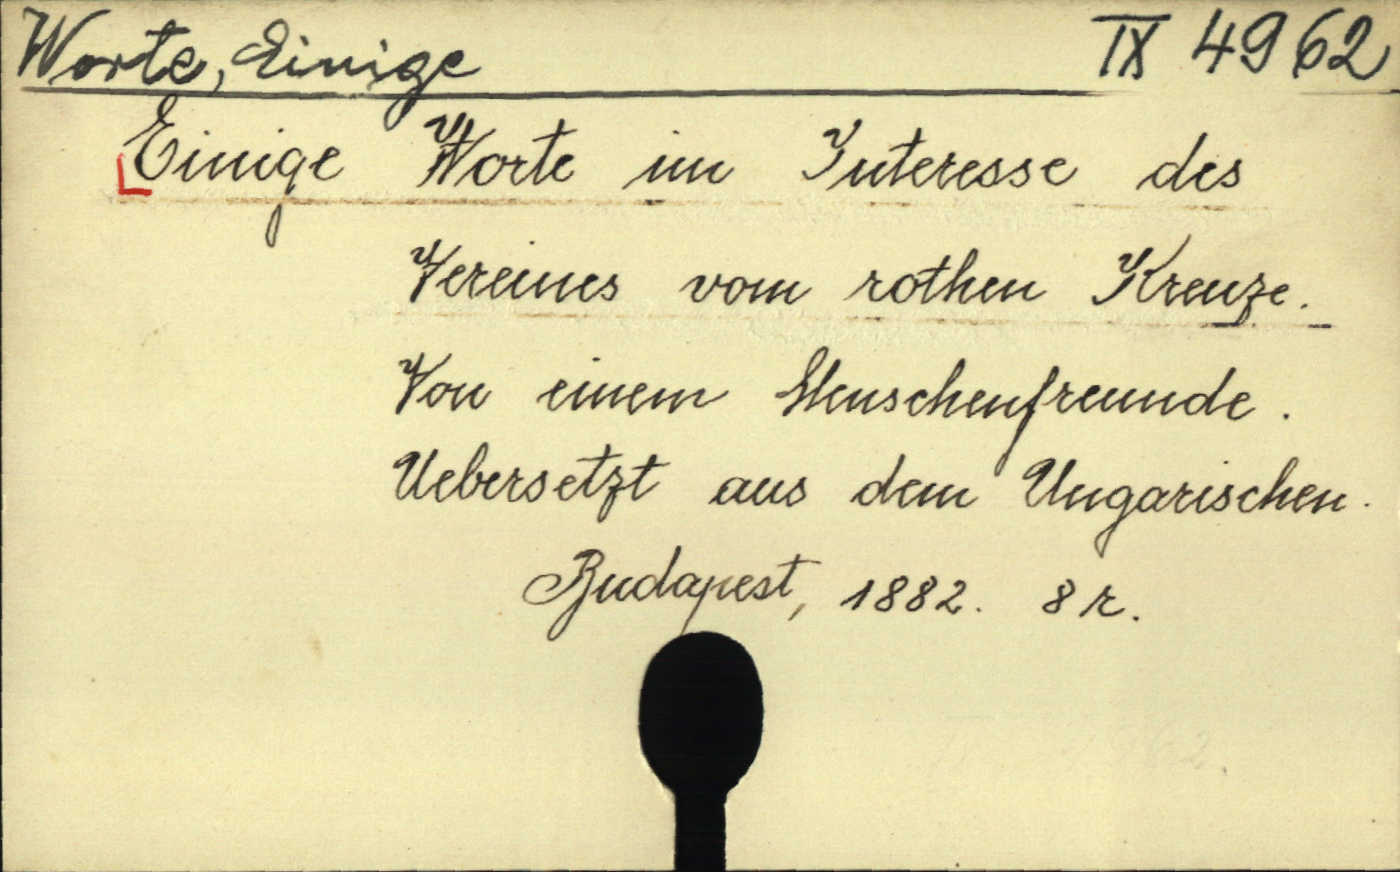 Worte, Einige IX 4962
Einige Worte im Interesse des
Vereines vom rothen Kreuze.
Von einem Menschenfreunde.
Uebersetzt aus dem Ungarischen.
Budapest, 1882. 8 r.